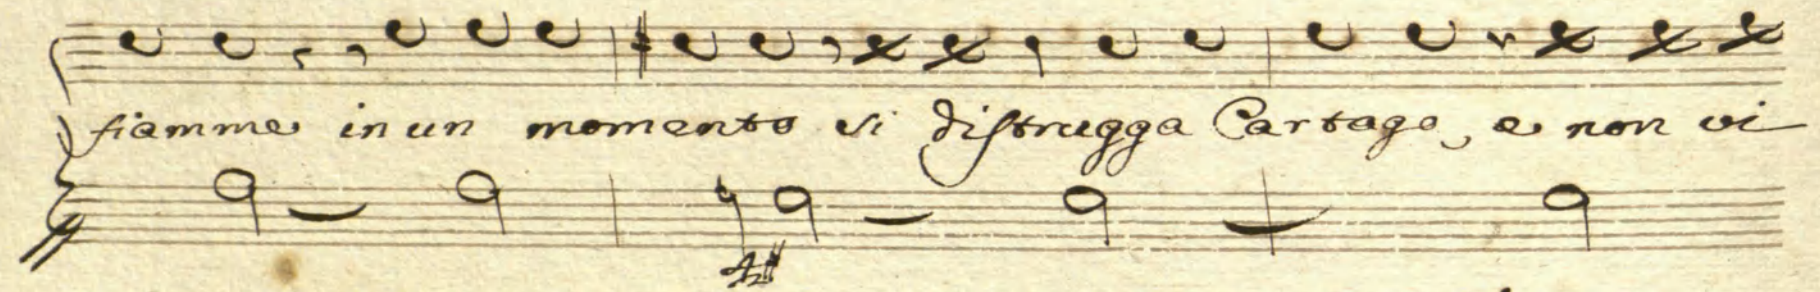 fiamme in un momento si diſtrugga Cartago, e non vi
4♯